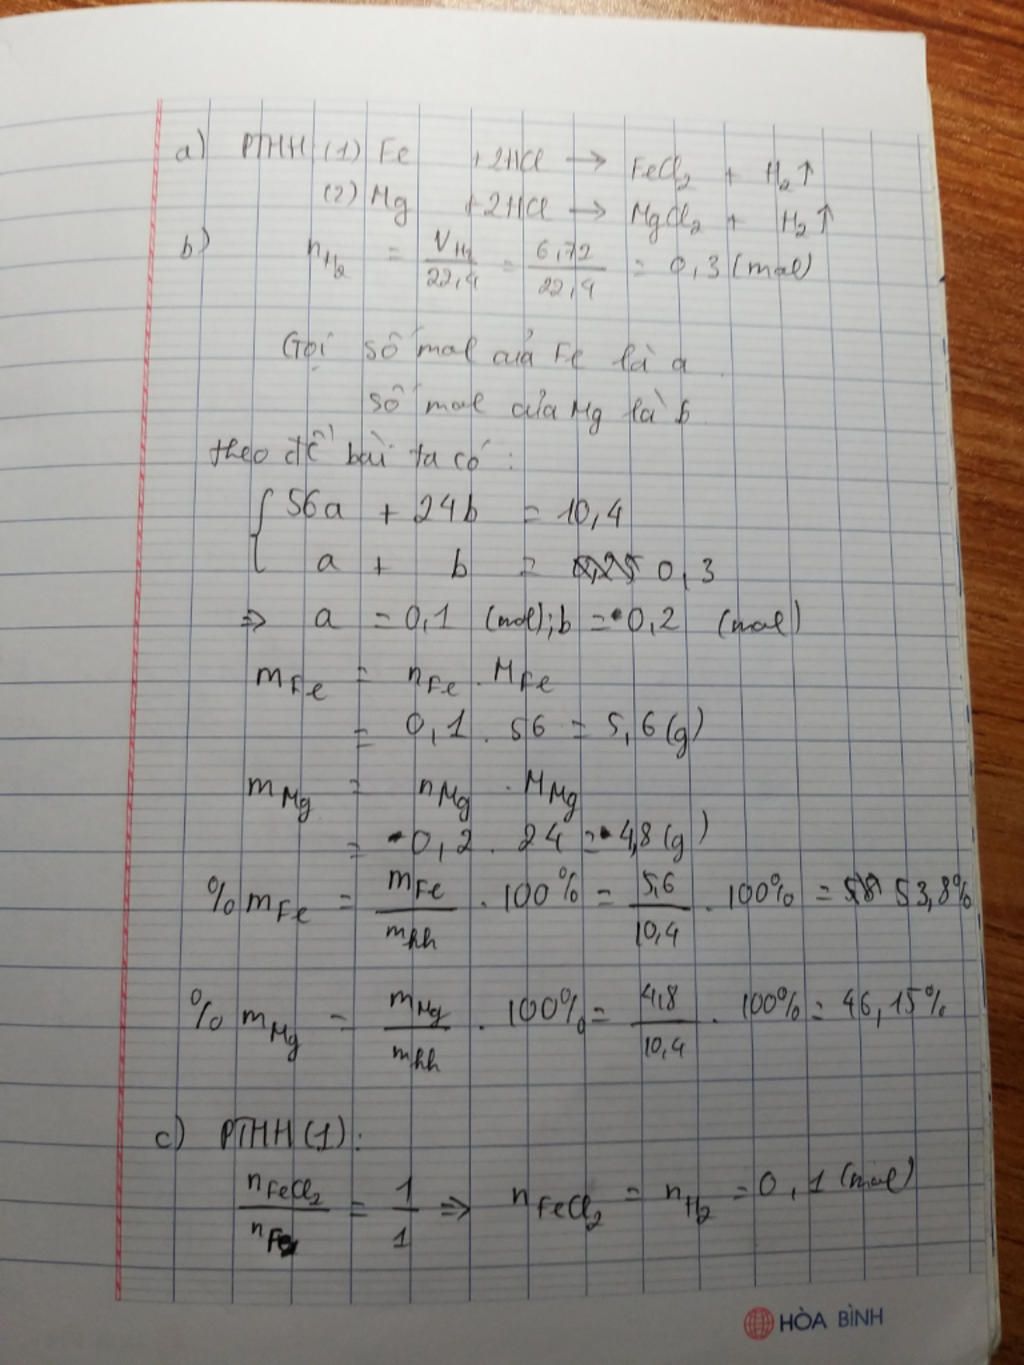 a) PTHH (1) Fe + 2HCl → FeCl₂ + H₂↑
(2) Mg + 2HCl → MgCl₂ + H₂↑
b) n_H₂ = V_H₂/22,4 = 6,72/22,4 = 0,3 (mol)
Gọi số mol của Fe là a
số mol của Mg là b
theo đề bài ta có :
{ 56a + 24b = 10,4
a + b = 0,3
⇒ a = 0,1 (mol); b = 0,2 (mol)
m_Fe = n_Fe . M_Fe
= 0,1 . 56 = 5,6 (g)
m_Mg = n_Mg . M_Mg
= 0,2 . 24 = 4,8 (g)
% m_Fe = m_Fe/m_hh . 100% = 5,6/10,4 . 100% = 53,8%
% m_Mg = m_Mg/m_hh . 100% = 4,8/10,4 . 100% = 46,15%
c) PTHH (1) :
n_FeCl₂/n_Fe = 1/1 ⇒ n_FeCl₂ = n_H₂ = 0,1 (mol)
HÒA BÌNH